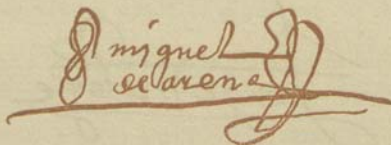 miguel
de arena